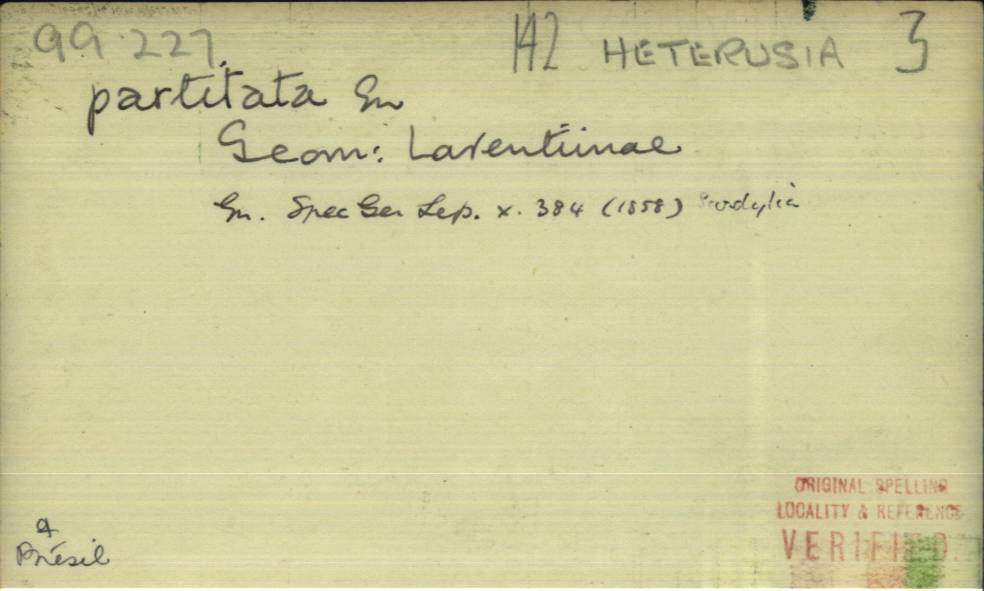 99.227. 142 HETERUSIA 3
partitata Gn
Geom: Larentiinae
Gn. Spec Gen Lep. x. 384 (1858)
Brésil
ORIGINAL SPELLING
LOCALITY & REFERENCE
VERIFIED.